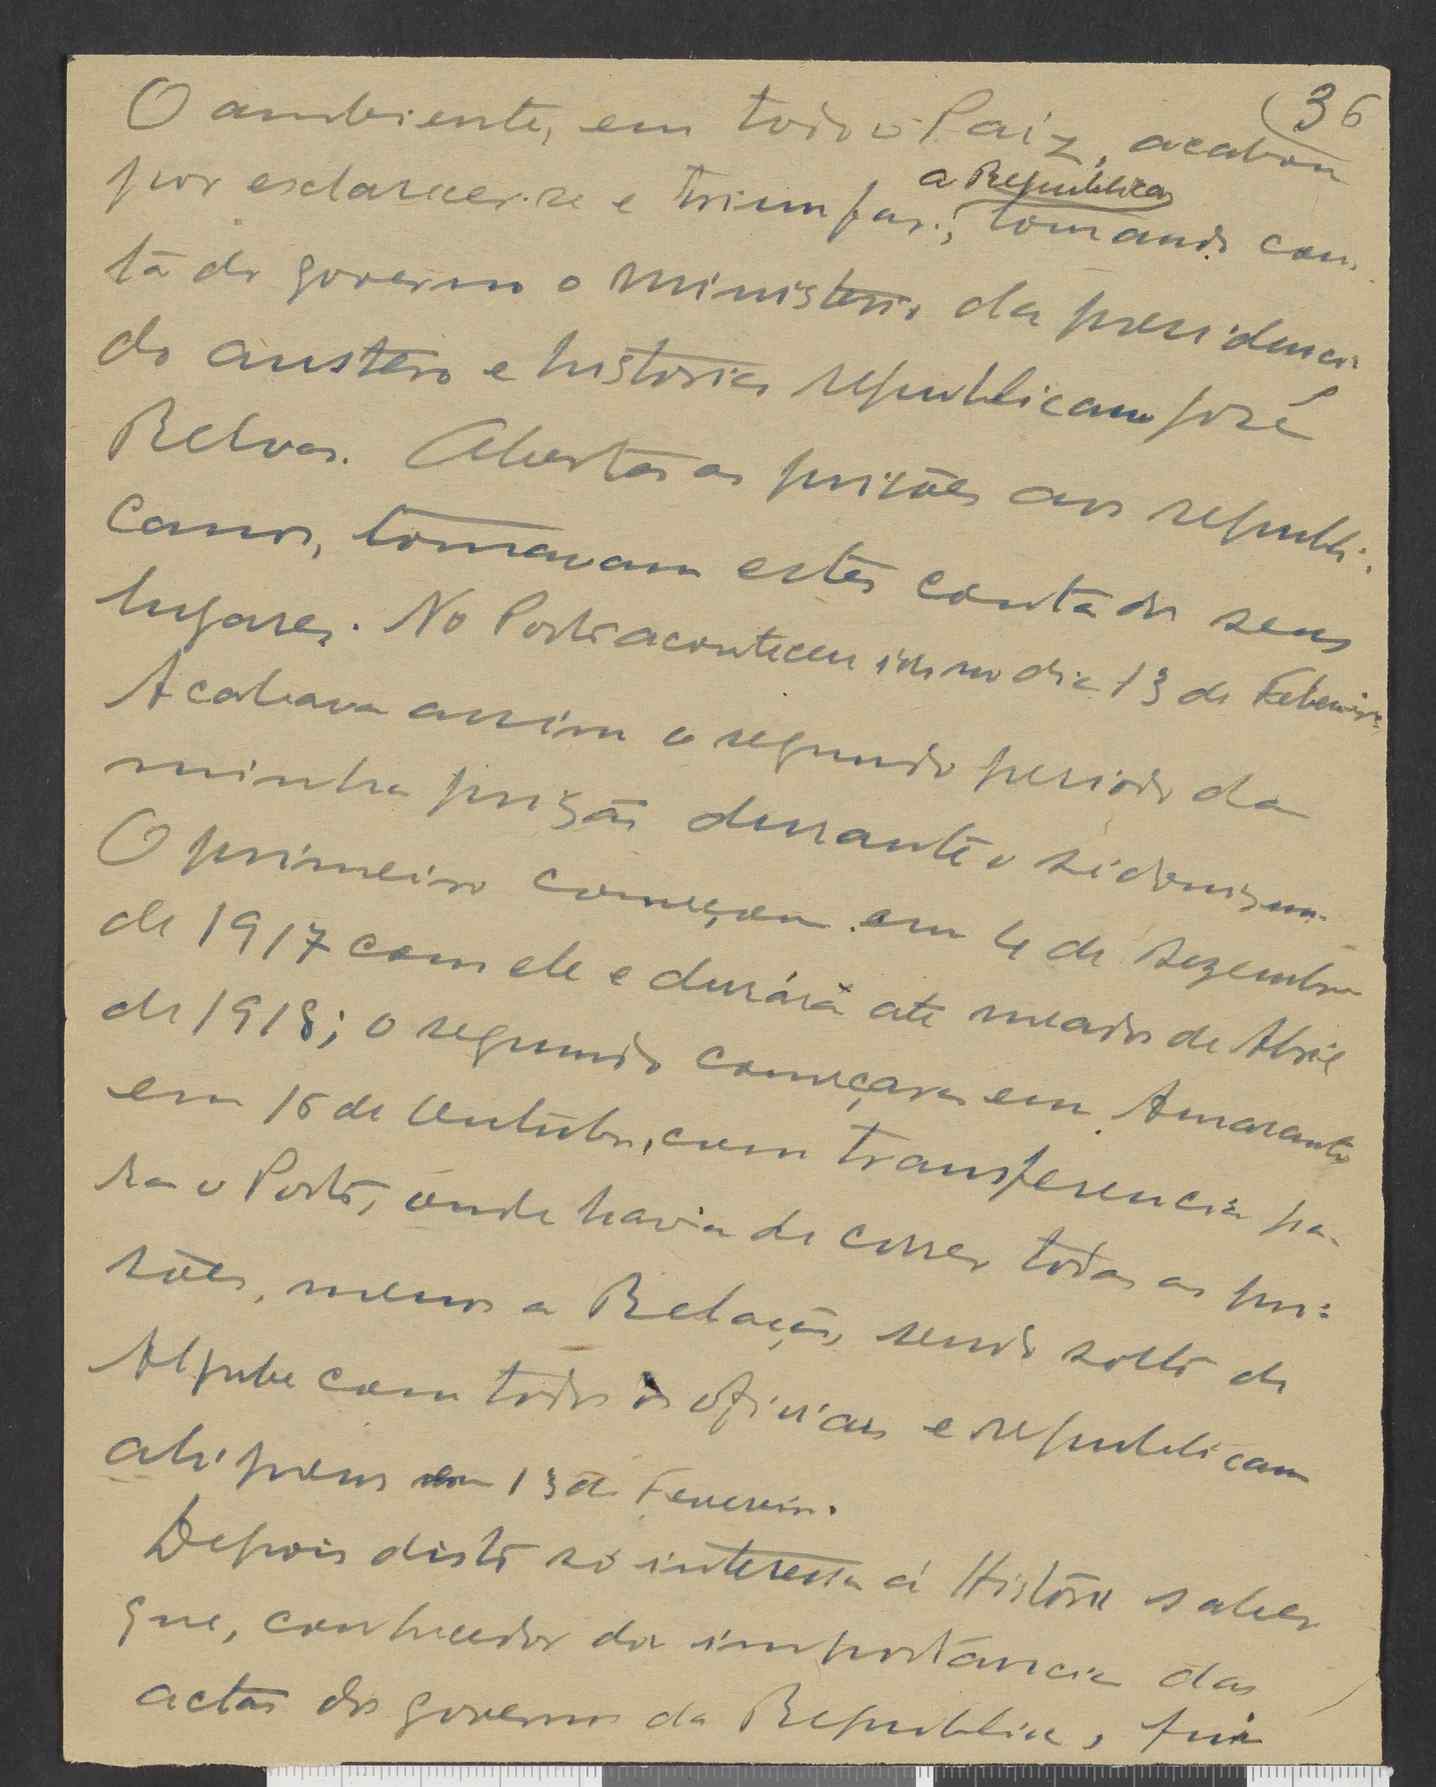 36
O ambiente, em todo o Paiz, acabou
por esclarecer-se e triumfar a Republica, tomando con-
ta do governo o ministerio da presidencia
do austero e historico republicano José
Relvas. Abertas as prisões aos republi-
canos, tomavam estes conta dos seus
lugares. No Porto aconteceu isso no dia 13 de Febereiro.
Acabava assim o segundo periodo da
minha prizão durante o sidonismo.
O primeiro começou em 4 de Dezembro
de 1917 com ele e durára até meados de Abril
de 1918; o segundo começara em Amarante
em 16 de Outubro, com transferencia pa-
ra o Porto, onde havia de correr todas as pri-
sões, menos a Relação, sendo solto do
Aljube com todos os oficiais e republicanos
ali presos em 13 de Fevereiro.
Depois disto só interessa á História saber
que, conhecedor da importancia das
actas dos governos da Republica, fui